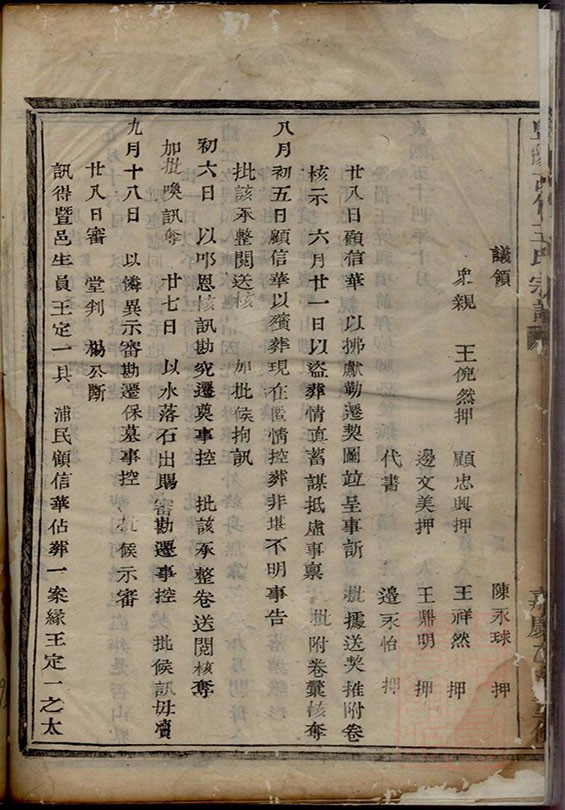 議領　陳永球　押
衆親　王倪然押　顧忠興押　王祥然　押
邊文美押　王鼎明　押
代書　邊永怡　押
廿八日顧信華　以拂獻勒遷契圖竝呈事訴　批據送契推附卷
核示　六月廿一日以盜葬情真蓄謀抵虛事稟　批附卷彙核奪
八月初五日顧信華以殯葬現在匿情控葬非堪不明事告
批該承整閱送核　加批候拘訊
初六日　以叩恩核訊勘究遷奠事控　批該承整卷送閱核奪
加批喚訊奪　廿七日　以水落石出賜審勘遷事控　批候訊毋瀆
九月十八日　以憐異示審勘遷保墓事控　批候示審
廿八日審　堂判　楊公斷
訊得暨邑生員王定一具　浦民顧信華佔葬一案緣王定一之太